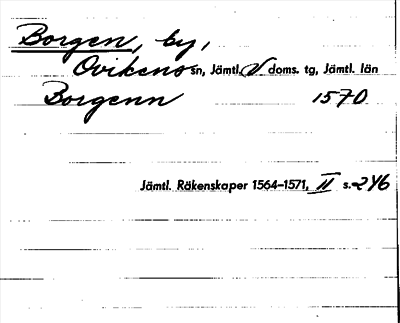 Borgen, by,
Ovikens sn, Jämtl. V doms. tg, Jämtl. län
Borgenn 1570
Jämtl. Räkenskaper 1564–1571, II s. 246